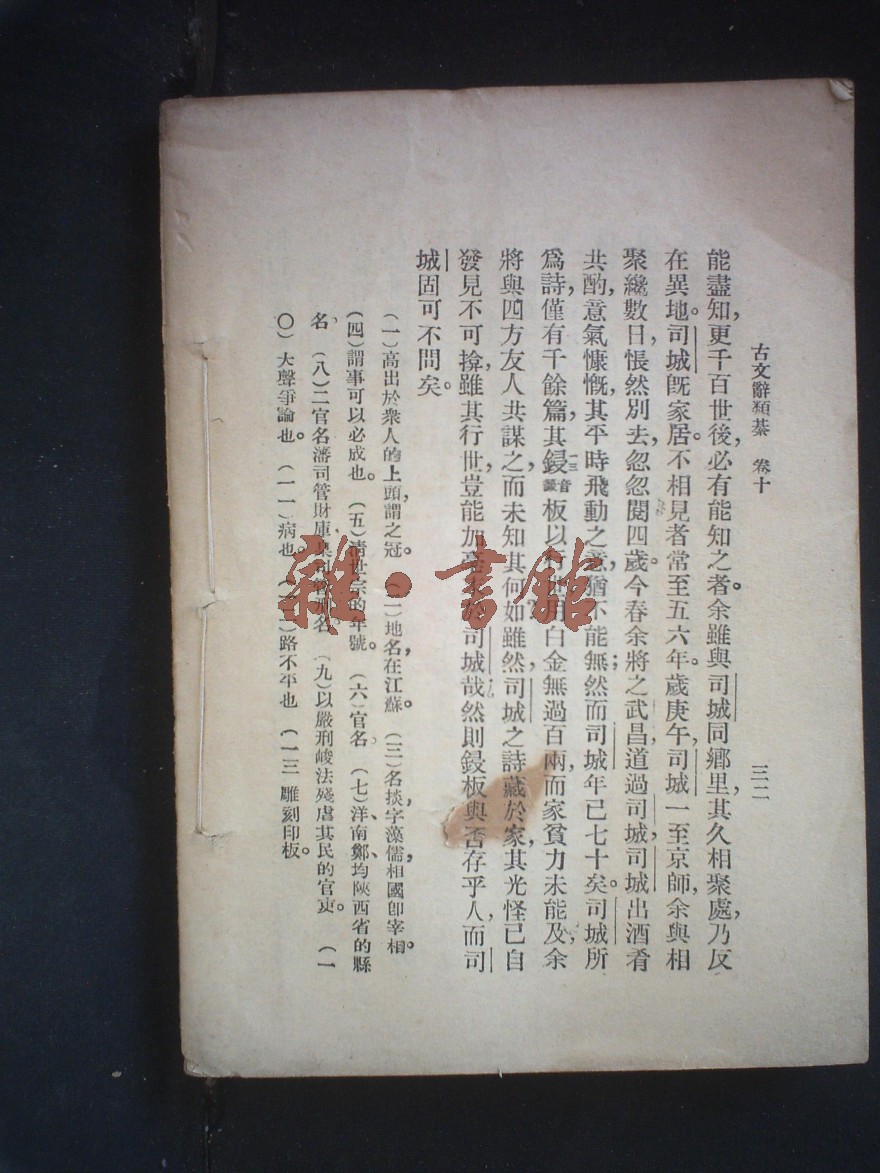 古文辭類纂 卷十 三二
能盡知，更千百世後，必有能知之者。余雖與司城同鄉里，其久相聚處，乃反
在異地。司城旣家居。不相見者常至五六年。歲庚午，司城一至京師，余與相
聚纔數日，悵然別去，忽忽閱四歲。今春余將之武昌，道過司城，司城出酒肴
共酌，意氣慷慨，其平時飛動之意，猶不能無；然而司城年已七十矣。司城所
爲詩，僅有千餘篇，其鋟一三音板以行世用白金無過百兩，而家貧力未能及，余
將與四方友人共謀之，而未知其何如，雖然，司城之詩藏於家，其光怪已自
發見不可揜，雖其行世，豈能加毫於司城哉，然則鋟板與否存乎人，而司
城固可不問矣。
（一）高出於衆人的上頭，謂之冠。（二）地名，在江蘇。（三）名掞，字藻儒，相國卽宰相。
（四）謂事可以必成也。（五）清世宗的年號。（六）官名，（七）洋、南鄭、均陝西省的縣
名，（八）二官名，藩司管財庫，臬司刑名。（九）以嚴刑峻法殘虐其民的官吏。（一
〇）大聲爭論也。（一一）病也。（一二）路不平也（一三 雕刻印板。
雜·書館